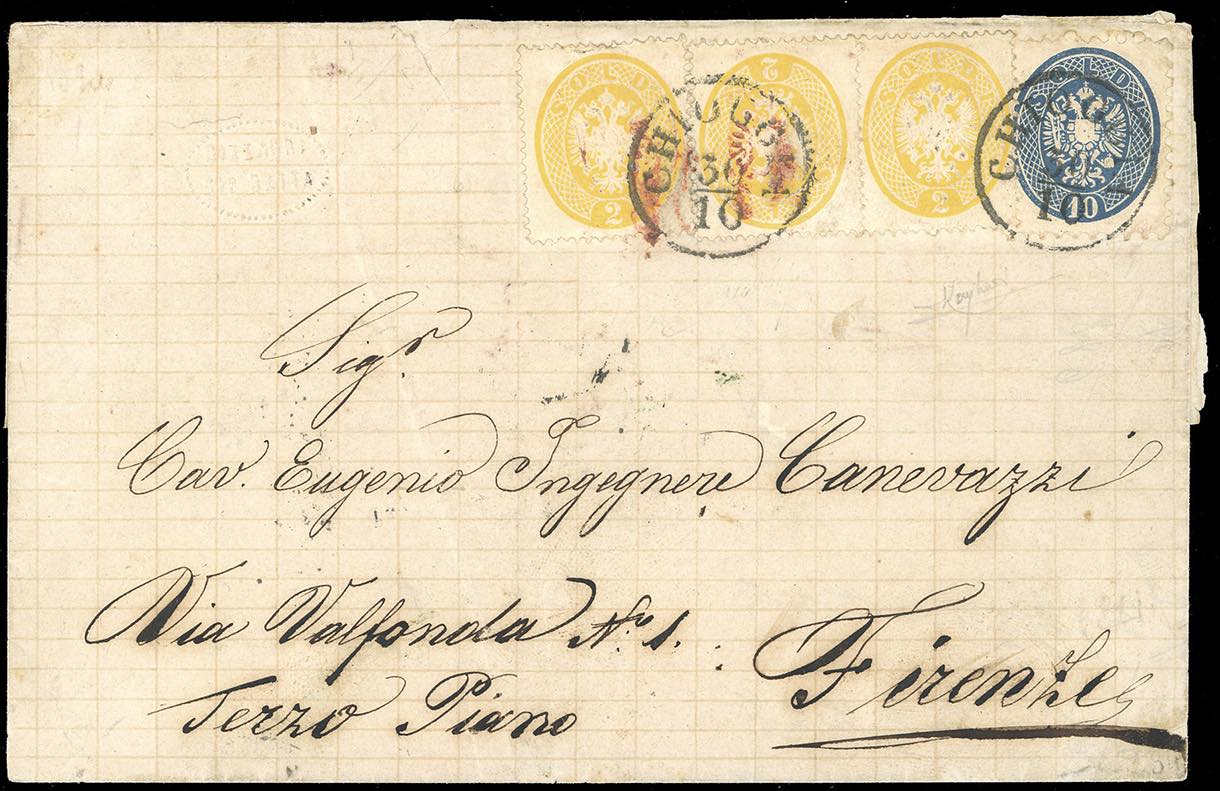 SOLDI 2
SOLDI 2
SOLDI 2
SOLDI 10
CHIOGGIA
30
10
CHIOGGIA
10
Sigr
Cav. Eugenio Ingegnere Canevazzi
Via Valfonda No 1.
Terzo Piano
Firenze